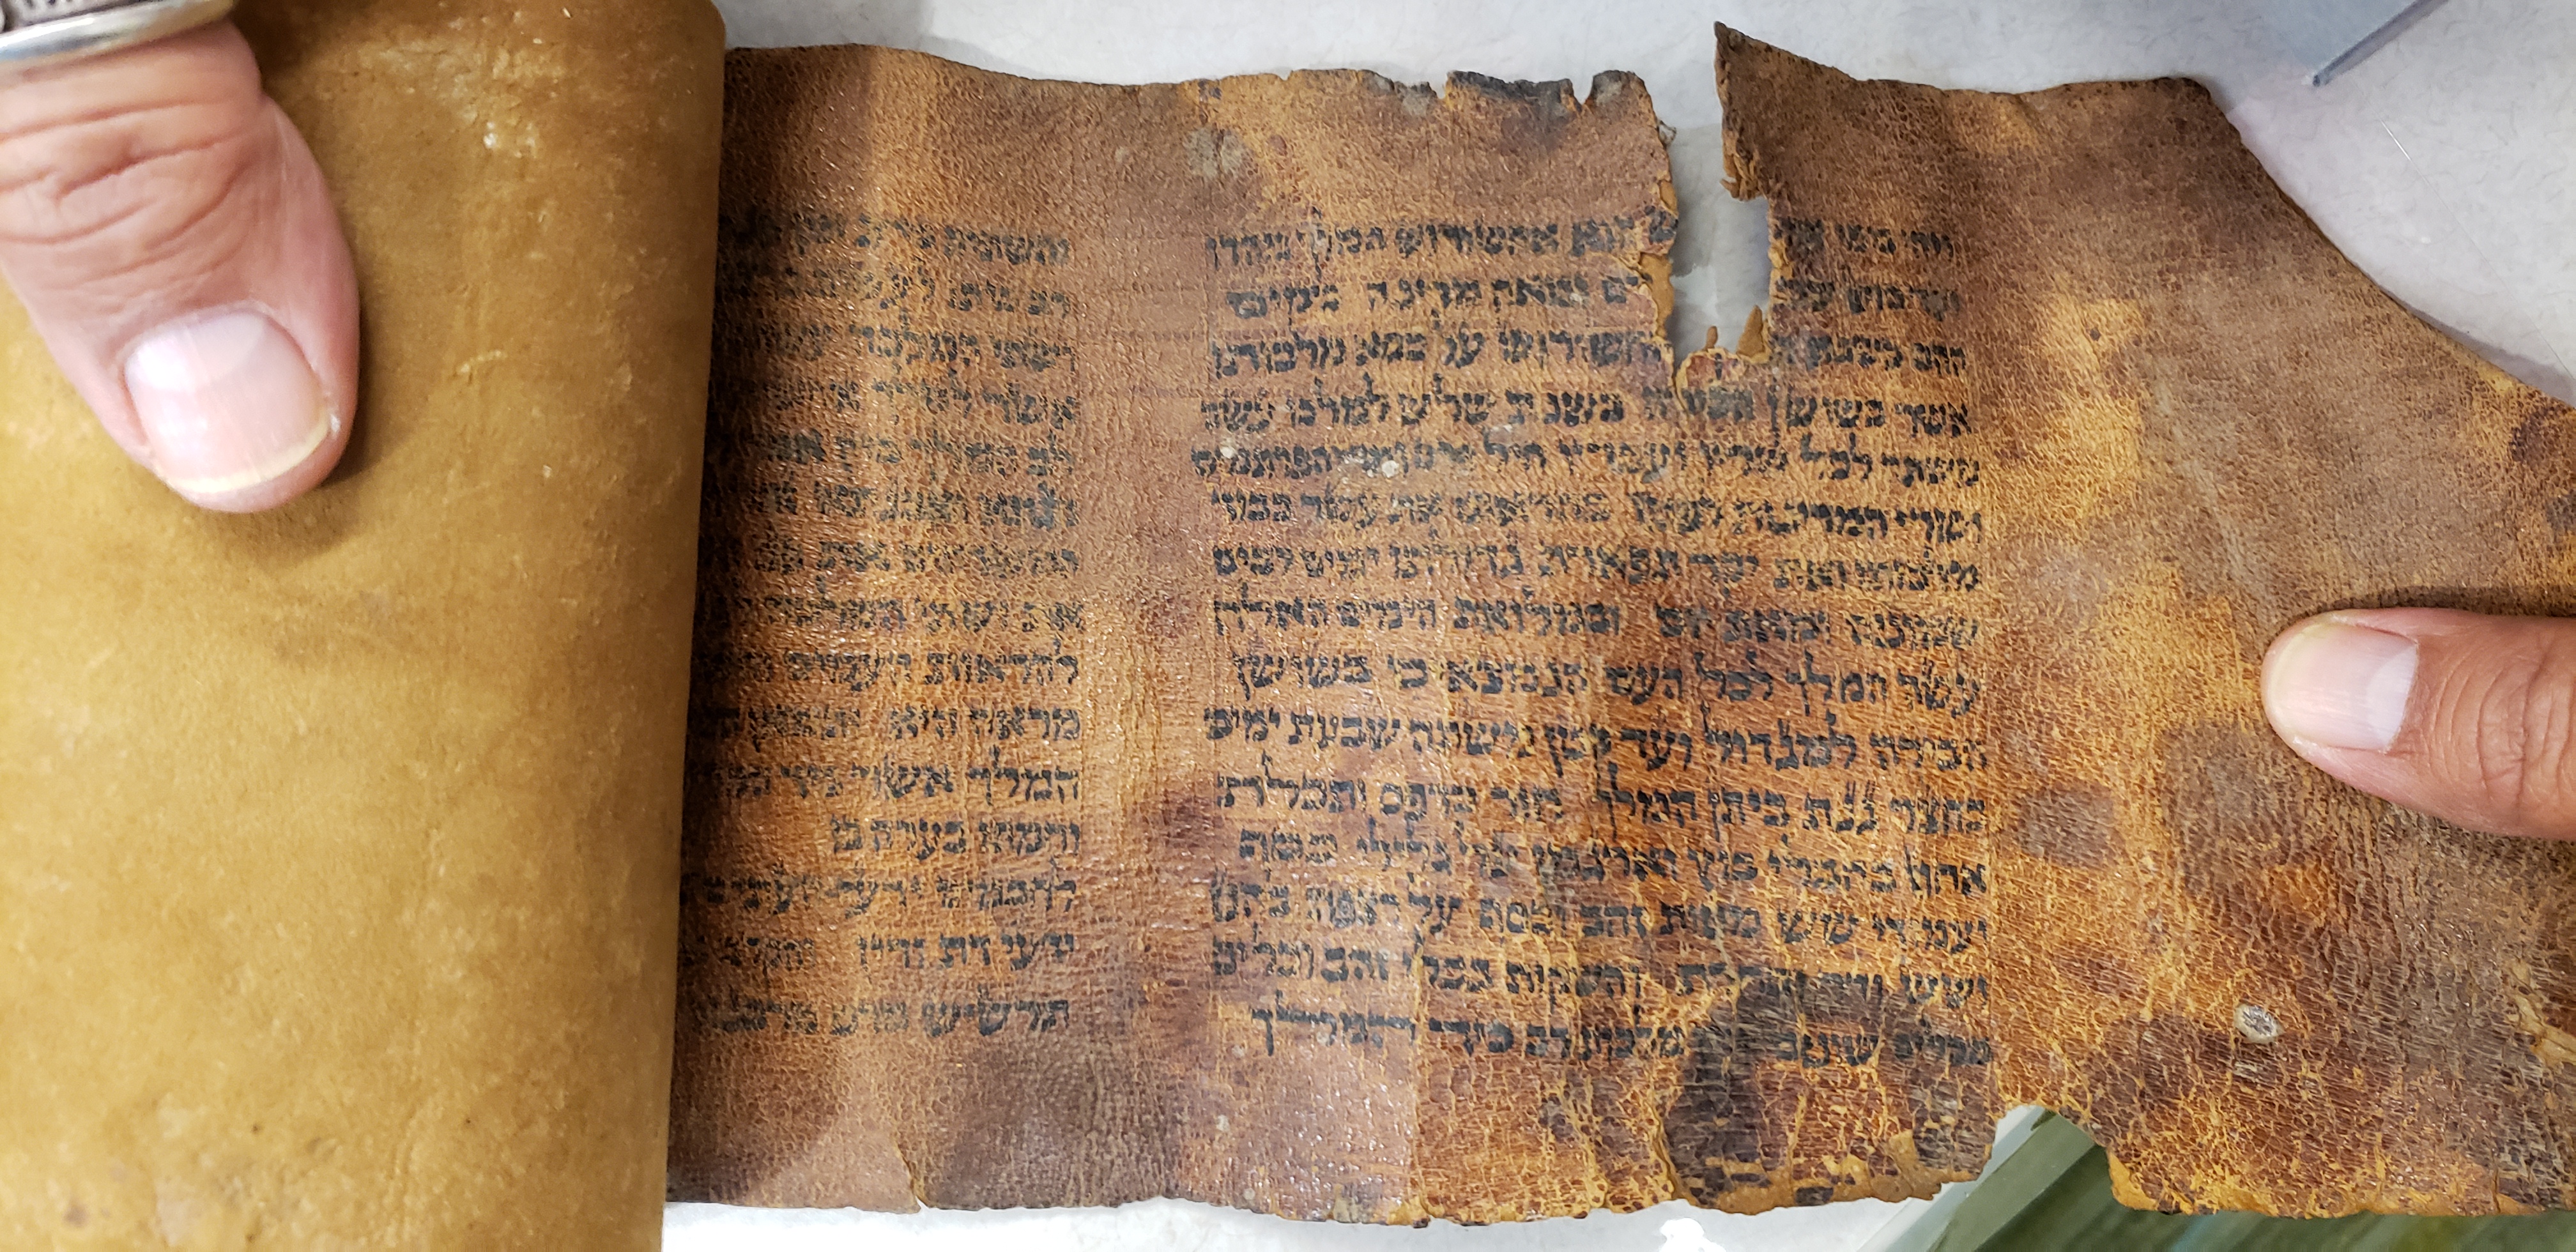 ויהי בימי ש הוא אחשורוש המלך מהדו
ועד כוש ים ומאה מדינה בימים
ההם כשבת אחשורוש על כסא מלכותו
אשר בשושן הבירה בשנת שלש למלכו עשה
משתה לכל שריו ועבדיו חיל פרס ומדי הפרתמים
ושרי המדינות לפניו בהראתו את עשר כבוד
מלכותו ואת יקר תפארת גדולתו ימים רבים
שמונים ומאת יום ובמלואת הימים האלה
עשה המלך לכל העם הנמצאים בשושן
הבירה למגדול ועד קטן משתה שבעת ימים
בחצר גנת ביתן המלך חור כרפס ותכלת
אחוז בחבלי בוץ וארגמן על גלילי כסף
ועמודי שש מטות זהב וכסף על רצפת בהט
ושש ודר וסחרת והשקות בכלי זהב וכלים
מכלים שונים מלכות רב כיד המלך
והשתיה כדת אין
רב ביתו לעשות
ושתי המלכה עשתה
אשר למלך
לב המלך ביין אמר
בגתא ואבגתא
המשרתים את פני
את ושתי המלכה
להראות העמים
מראה היא ותמאן
המלך אשר ביד
וחמתו בערה בו
לחכמים ידעי העתים
ידעי דת ודין והקרב
תרשיש מרס